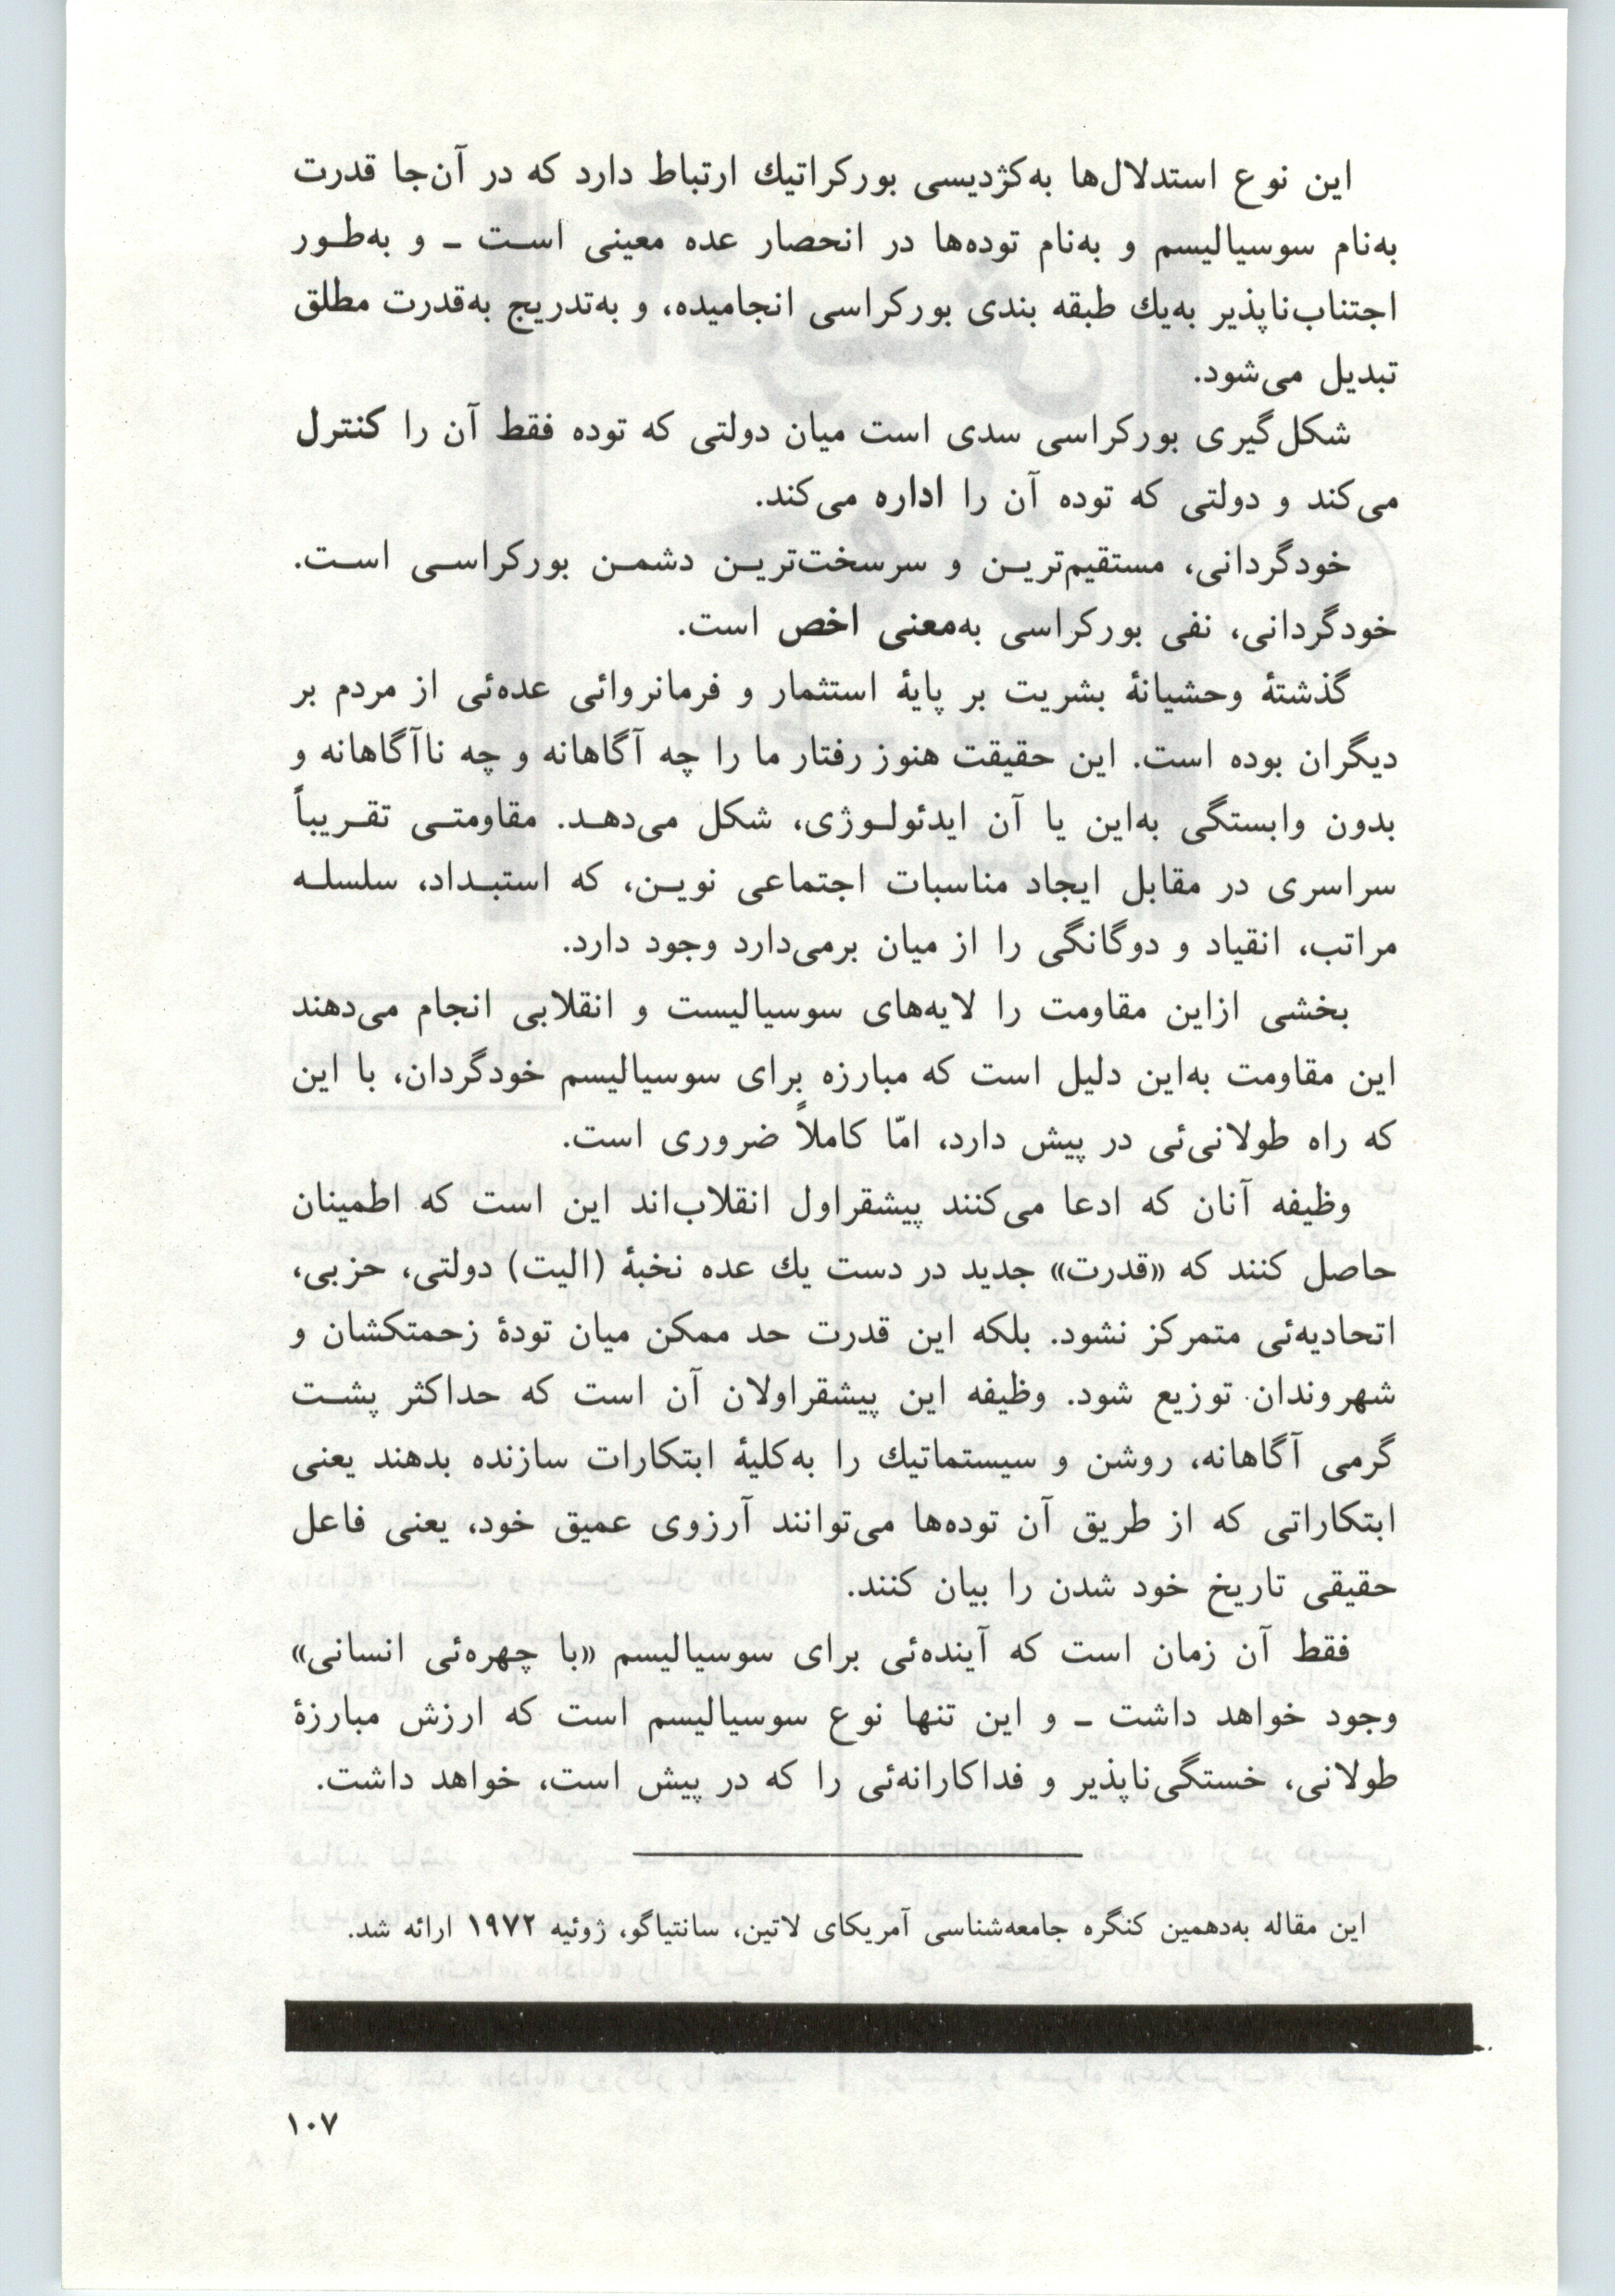 این نوع استدلال‌ها به‌کژدیسی بورکراتیك ارتباط دارد که در آن‌جا قدرت
به‌نام سوسیالیسم و به‌نام توده‌ها در انحصار عده معینی است ـ و به‌طور
اجتناب‌ناپذیر به‌یك طبقه بندی بورکراسی انجامیده، و به‌تدریج به‌قدرت مطلق
تبدیل می‌شود.
شکل‌گیری بورکراسی سدی است میان دولتی که توده فقط آن را کنترل
می‌کند و دولتی که توده آن را اداره می‌کند.
خودگردانی، مستقیم‌ترین و سرسخت‌ترین دشمن بورکراسی است.
خودگردانی، نفی بورکراسی به‌معنی اخص است.
گذشتهٔ وحشیانهٔ بشریت بر پایهٔ استثمار و فرمانروائی عده‌ئی از مردم بر
دیگران بوده است. این حقیقت هنوز رفتار ما را چه آگاهانه و چه ناآگاهانه و
بدون وابستگی به‌این یا آن ایدئولوژی، شکل می‌دهد. مقاومتی تقریباً
سراسری در مقابل ایجاد مناسبات اجتماعی نوین، که استبداد، سلسله
مراتب، انقیاد و دوگانگی را از میان برمی‌دارد وجود دارد.
بخشی ازاین مقاومت را لایه‌های سوسیالیست و انقلابی انجام می‌دهند
این مقاومت به‌این دلیل است که مبارزه برای سوسیالیسم خودگردان، با این
که راه طولانی‌ئی در پیش دارد، امّا کاملاً ضروری است.
وظیفه آنان که ادعا می‌کنند پیشقراول انقلاب‌اند این است که اطمینان
حاصل کنند که «قدرت» جدید در دست یك عده نخبهٔ (الیت) دولتی، حزبی،
اتحادیه‌ئی متمرکز نشود. بلکه این قدرت حد ممکن میان تودهٔ زحمتکشان و
شهروندان توزیع شود. وظیفه این پیشقراولان آن است که حداکثر پشت
گرمی آگاهانه، روشن و سیستماتیك را به‌کلیهٔ ابتکارات سازنده بدهند یعنی
ابتکاراتی که از طریق آن توده‌ها می‌توانند آرزوی عمیق خود، یعنی فاعل
حقیقی تاریخ خود شدن را بیان کنند.
فقط آن زمان است که آینده‌ئی برای سوسیالیسم «با چهره‌ئی انسانی»
وجود خواهد داشت ـ و این تنها نوع سوسیالیسم است که ارزش مبارزهٔ
طولانی، خستگی‌ناپذیر و فداکارانه‌ئی را که در پیش است، خواهد داشت.
این مقاله به‌دهمین کنگره جامعه‌شناسی آمریکای لاتین، سانتیاگو، ژوئیه ۱۹۷۲ ارائه شد.
۱۰۷